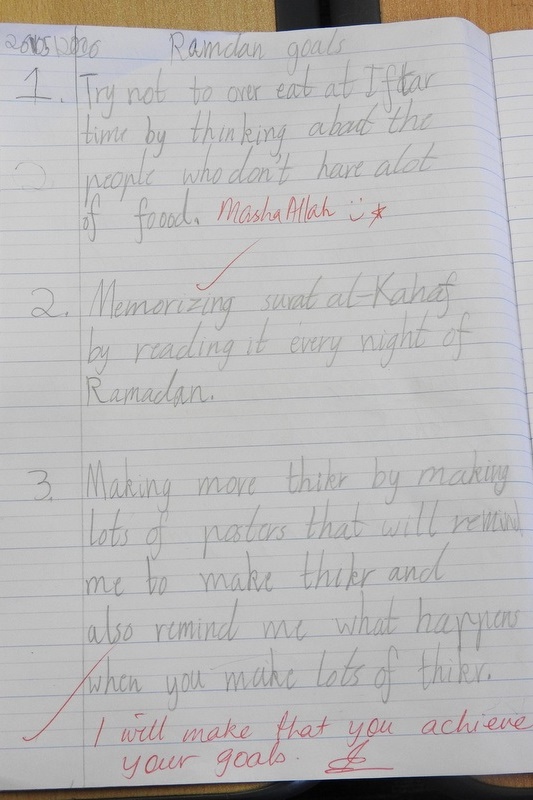 Ramdan goals
1. Try not to over eat at Iftar
time by thinking about the
people who don't have alot
of foood. MashaAllah
2. Memorizing surat al-Kahaf
by reading it every night of
Ramadan.
3. Making more thikr by making
lots of posters that will remind
me to make thikr and
also remind me what happens
when you make lots of thikr.
I will make that you achieve
your goals.